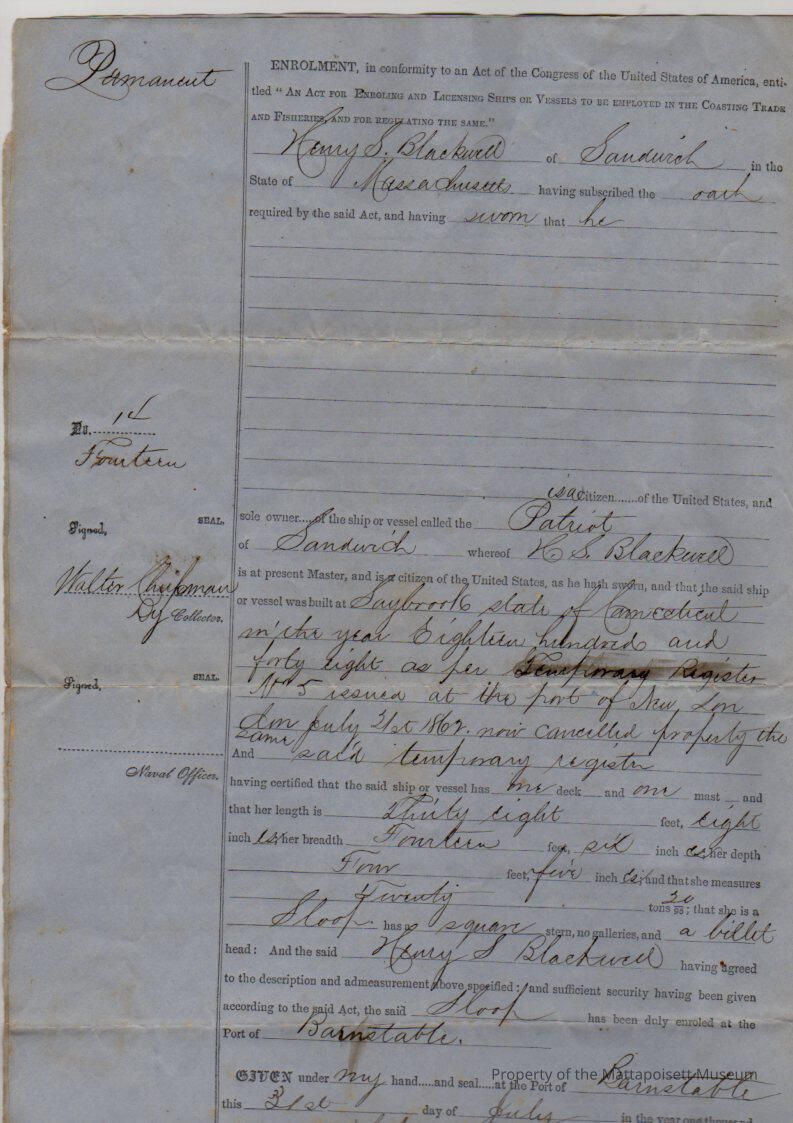 Permanent
ENROLMENT, in conformity to an Act of the Congress of the United States of America, enti-
tled "AN ACT FOR ENROLING AND LICENSING SHIPS OR VESSELS TO BE EMPLOYED IN THE COASTING TRADE
AND FISHERIES, AND FOR REGULATING THE SAME."
Henry S. Blackwell of Sandwich in the
State of Massachusetts having subscribed the oath
required by the said Act, and having sworn that he
No. 14
Fourteen
is a citizen......of the United States, and
SEAL.
sole owner....of the ship or vessel called the Patriot
Signed,
of Sandwich whereof H S. Blackwell
Walter Chipman
is at present Master, and is a citizen of the United States, as he hath sworn, and that the said ship
Dy Collector.
or vessel was built at Saybrook state of Conneticut
in the year Eighteen hundred and
forty eight as per Temporary Register
Signed,
SEAL.
No 5 issued at the port of New Lon
don July 21st 1862. now cancelled property the
same
And said temporary register
Naval Officer.
having certified that the said ship or vessel has one deck and one mast and
that her length is Thirty eight feet, eight
inch es; her breadth Fourteen feet, six inch es; her depth
Four feet, five inch es; and that she measures
Twenty tons 30/95; that she is a
Sloop has a square stern, no galleries, and a billet
head: And the said Henry S Blackwell having agreed
to the description and admeasurement above specified: and sufficient security having been given
according to the said Act, the said Sloop has been duly enroled at the
Port of Barnstable.
GIVEN under my hand.....and seal.....at the Port of Barnstable
Property of the Mattapoisett Museum
this 31st day of July in the year one thousand